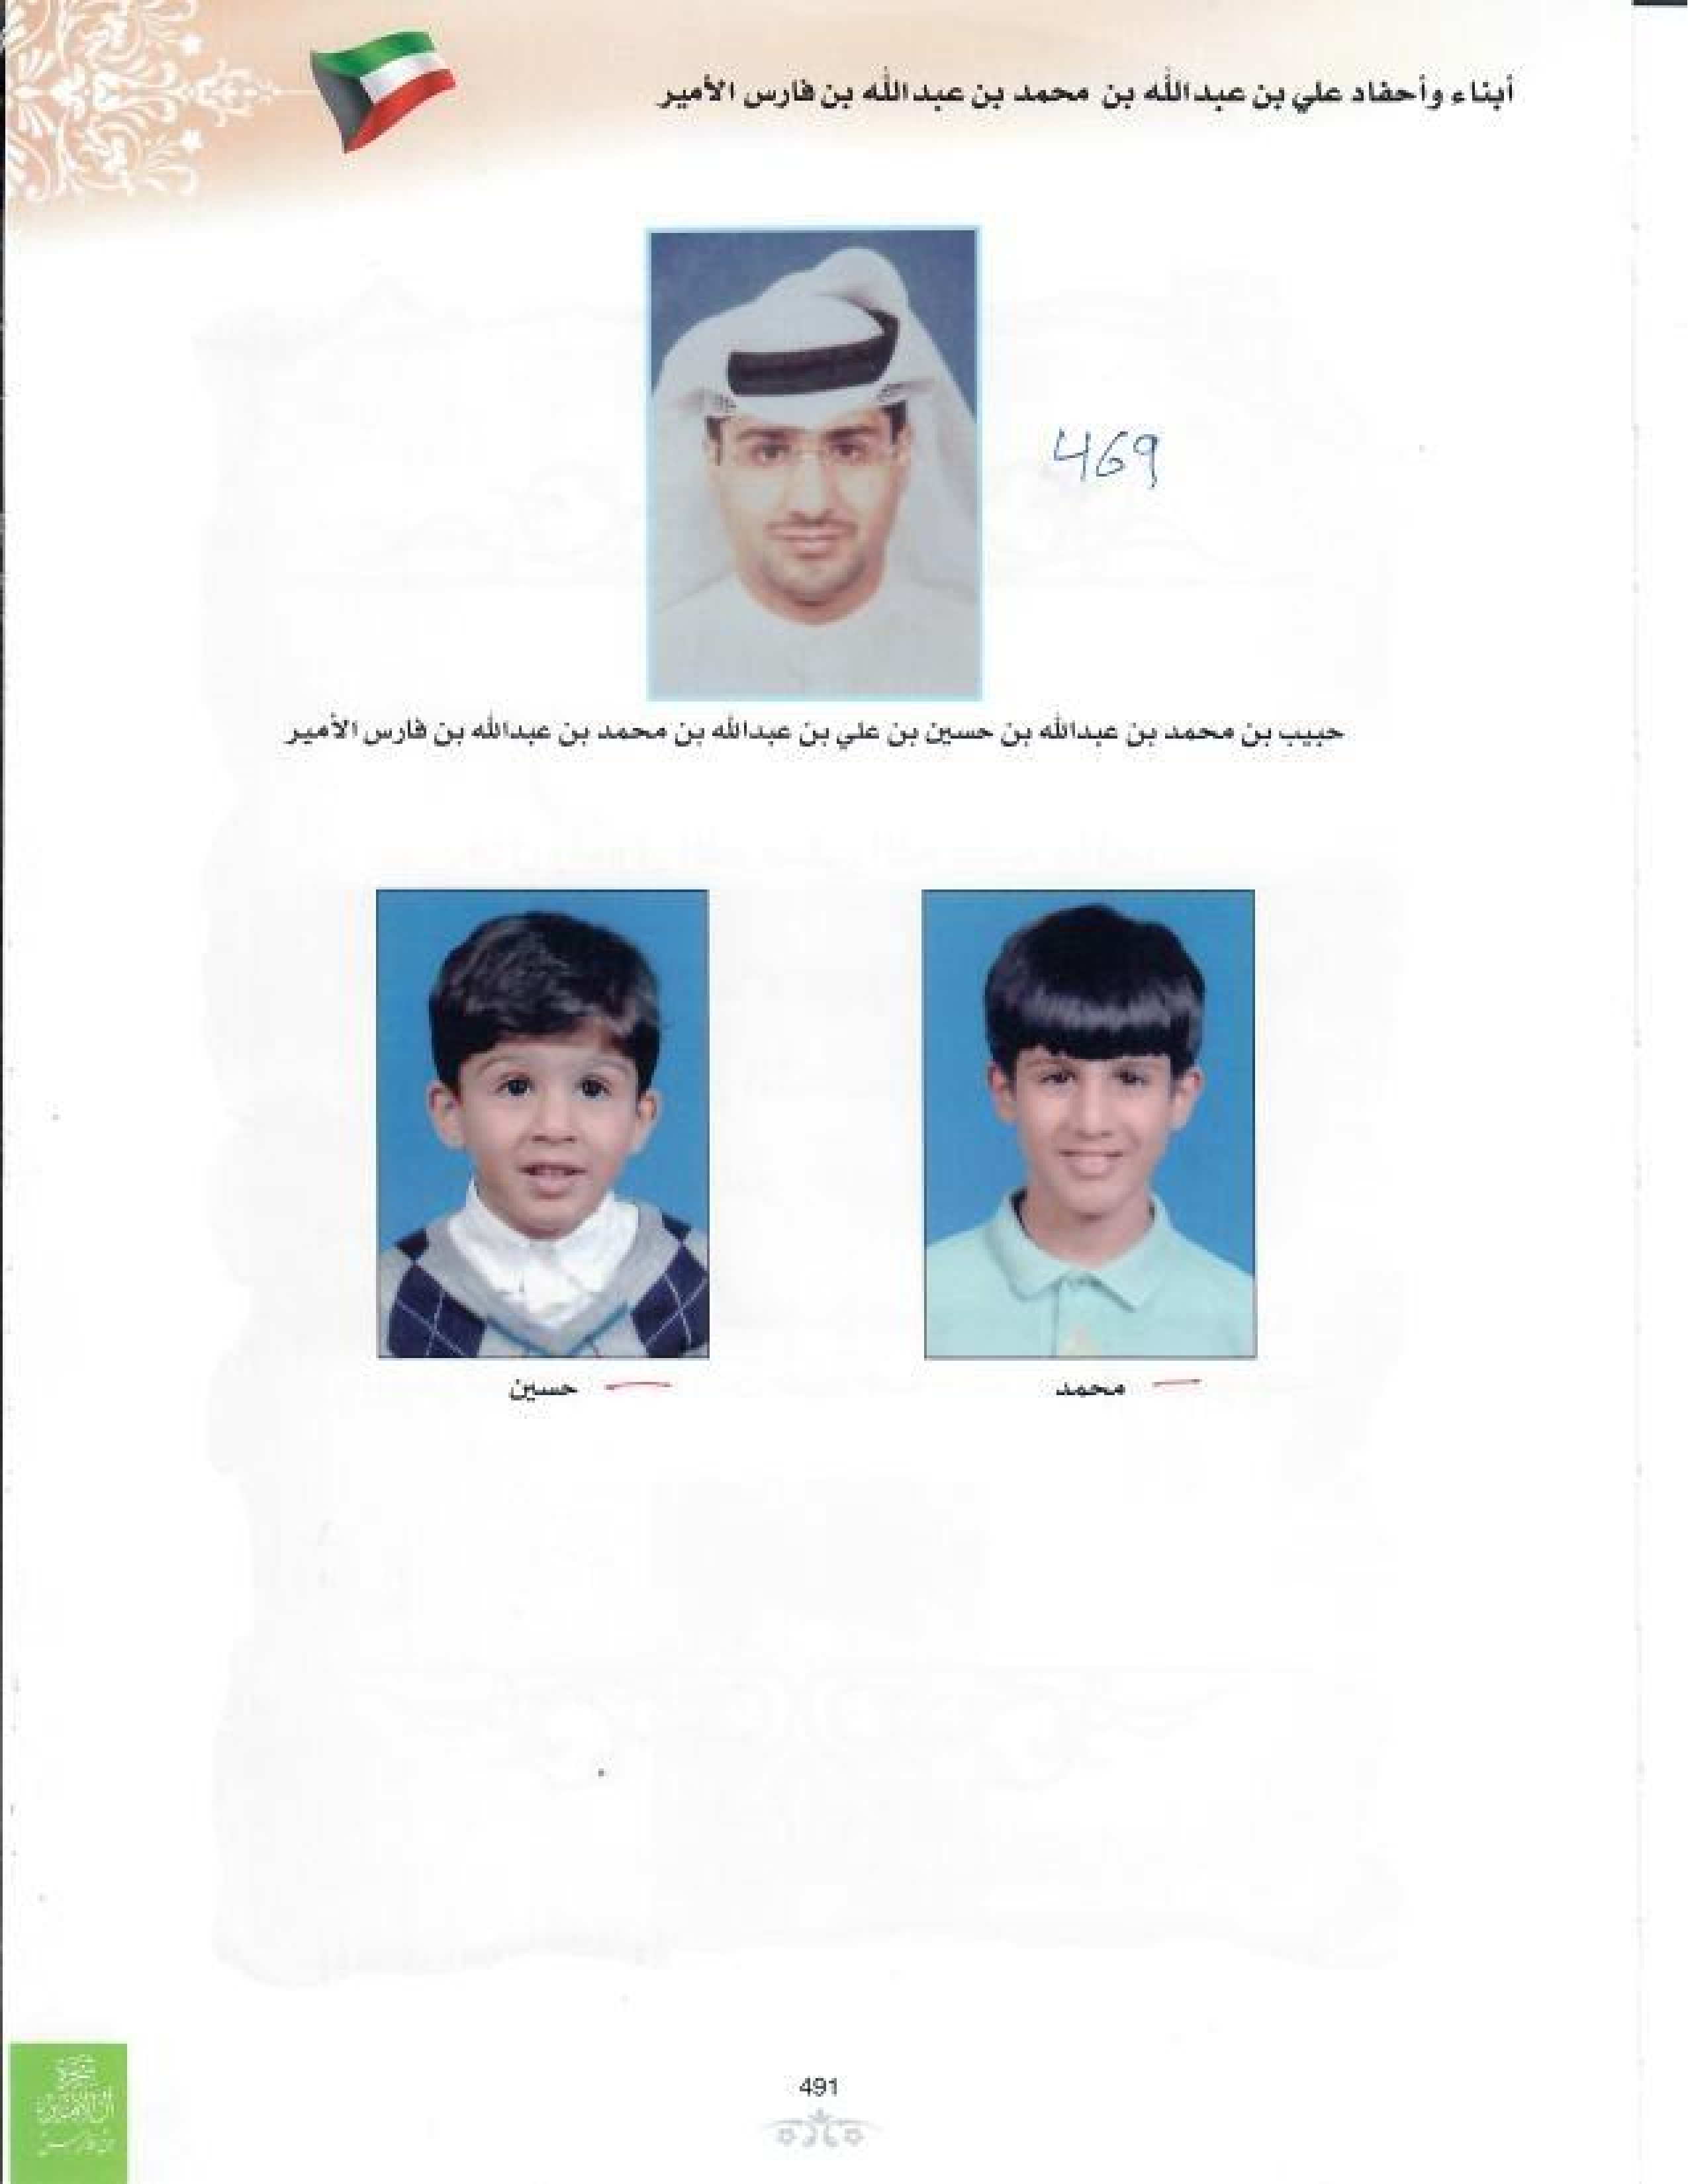 أبناء وأحفاد علي بن عبدالله بن محمد بن عبدالله بن فارس الأمير
469
حبيب بن محمد بن عبدالله بن حسين بن علي بن عبدالله بن محمد بن عبدالله بن فارس الأمير
محمد
حسين
491